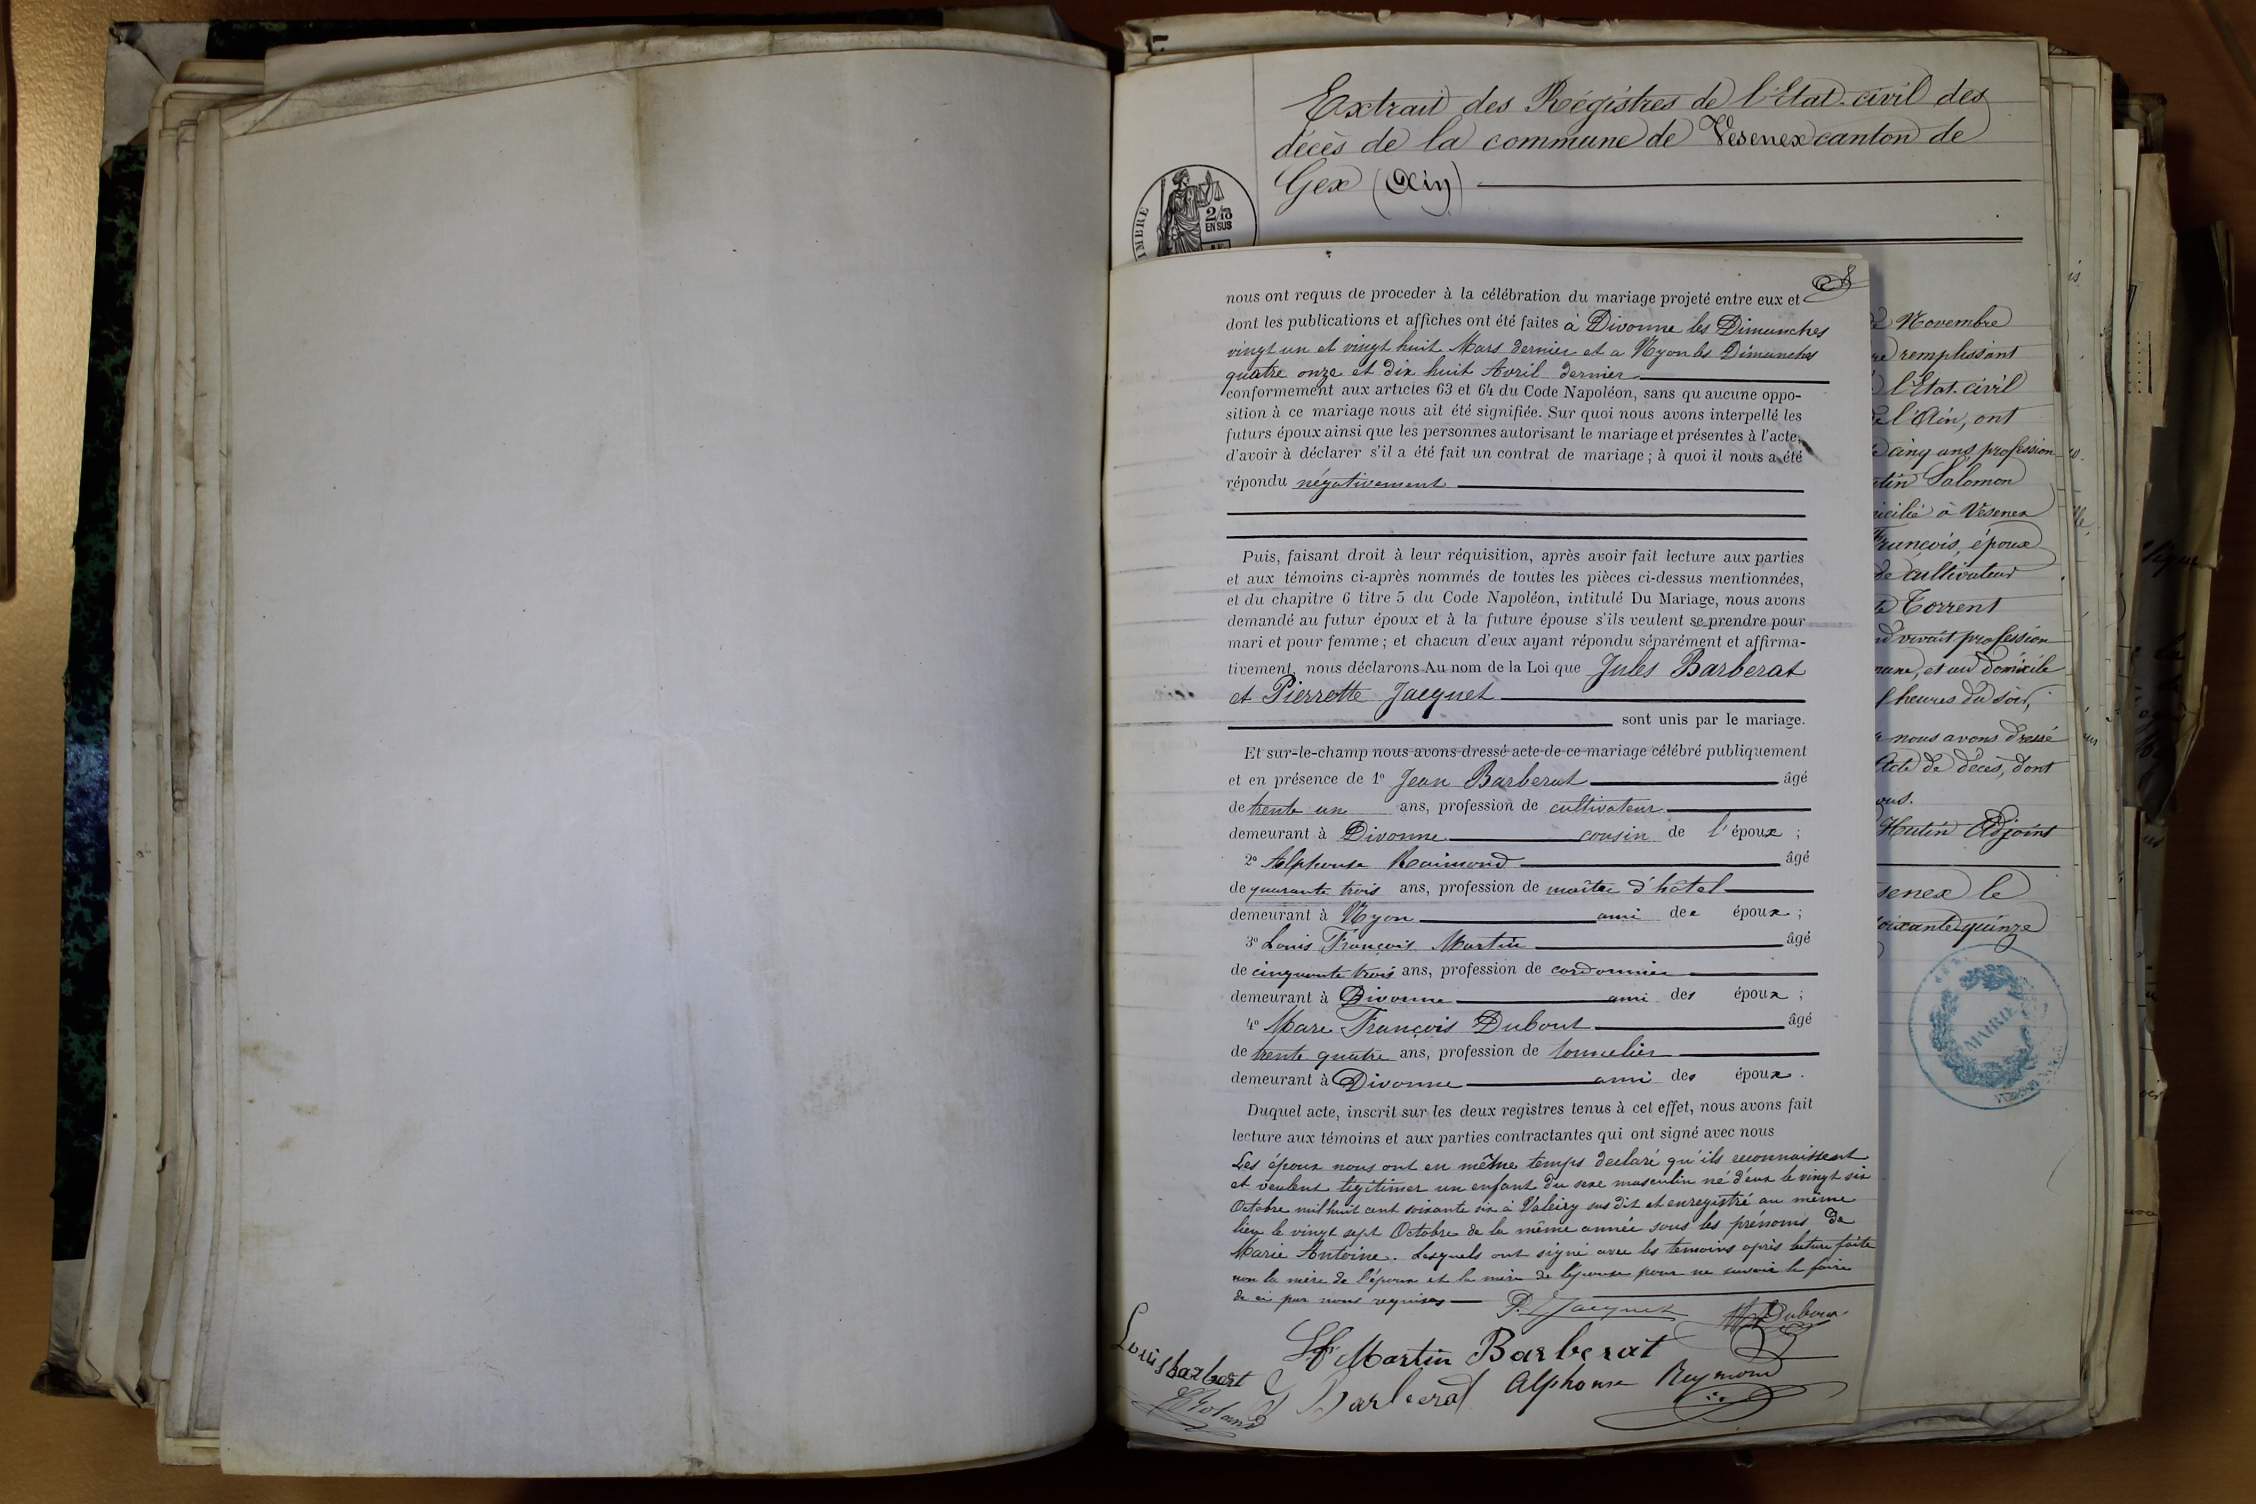 Extrait des Régistres de l'Etat-civil des
décès de la commune de Vesenex canton de
Gex (Ain)
TIMBRE
2/10
EN SUS
nous ont requis de proceder à la célébration du mariage projeté entre eux et
dont les publications et affiches ont été faites à Divonne les Dimanches
vingt un et vingt huit Mars dernier et a Nyon les Dimanches
quatre onze et dix huit Avril dernier
conformement aux articles 63 et 64 du Code Napoléon, sans qu'aucune oppo-
sition à ce mariage nous ait été signifiée. Sur quoi nous avons interpellé les
futurs époux ainsi que les personnes autorisant le mariage et présentes à l'acte,
d'avoir à déclarer s'il a été fait un contrat de mariage ; à quoi il nous a été
répondu négativement
Puis, faisant droit à leur réquisition, après avoir fait lecture aux parties
et aux témoins ci-après nommés de toutes les pièces ci-dessus mentionnées,
et du chapitre 6 titre 5 du Code Napoléon, intitulé Du Mariage, nous avons
demandé au futur époux et à la future épouse s'ils veulent se prendre pour
mari et pour femme ; et chacun d'eux ayant répondu séparément et affirma-
tivement, nous déclarons Au nom de la Loi que Jules Barberat
et Pierrette Jacquet
sont unis par le mariage.
Et sur-le-champ nous avons dressé acte de ce mariage célébré publiquement
et en présence de 1° Jean Barberat âgé
de trente un ans, profession de cultivateur
demeurant à Divonne cousin de l'époux ;
2° Alphonse Raimond âgé
de quarante trois ans, profession de maître d'hôtel
demeurant à Nyon ami des époux ;
3° Louis François Martin âgé
de cinquante trois ans, profession de cordonnier
demeurant à Divonne ami des époux ;
4° Marc François Dubout âgé
de trente quatre ans, profession de tonnelier
demeurant à Divonne ami des époux.
Duquel acte, inscrit sur les deux registres tenus à cet effet, nous avons fait
lecture aux témoins et aux parties contractantes qui ont signé avec nous
Les époux nous ont en même temps declaré qu'ils reconnaissent
et veulent légitimer un enfant du sexe masculin né d'eux le vingt six
Octobre mil huit cent soixante six à Valeiry sus dit et enregistré au même
lieu le vingt sept Octobre de la même année sous les prénoms de
Marie Antoine. Lesquels ont signé avec les temoins après lecture faite
non la mère de l'époux et la mère de l'épouse pour ne savoir le faire
de ci par nous requises
P. Jacquet
Louis barbert
Lf Martin Barberat
Barberat Alphonse Reymond
Novembre
remplissant
l'Etat-civil
de l'Ain, ont
cinq ans profession
Salomon
à Vésenex
François, époux
de cultivateur
Torrent
vivait profession
et au domicile
heures du soir,
nous avons dressé
acte de décès, dont
Hutin Adjoint
le
quinze
MAIRIE